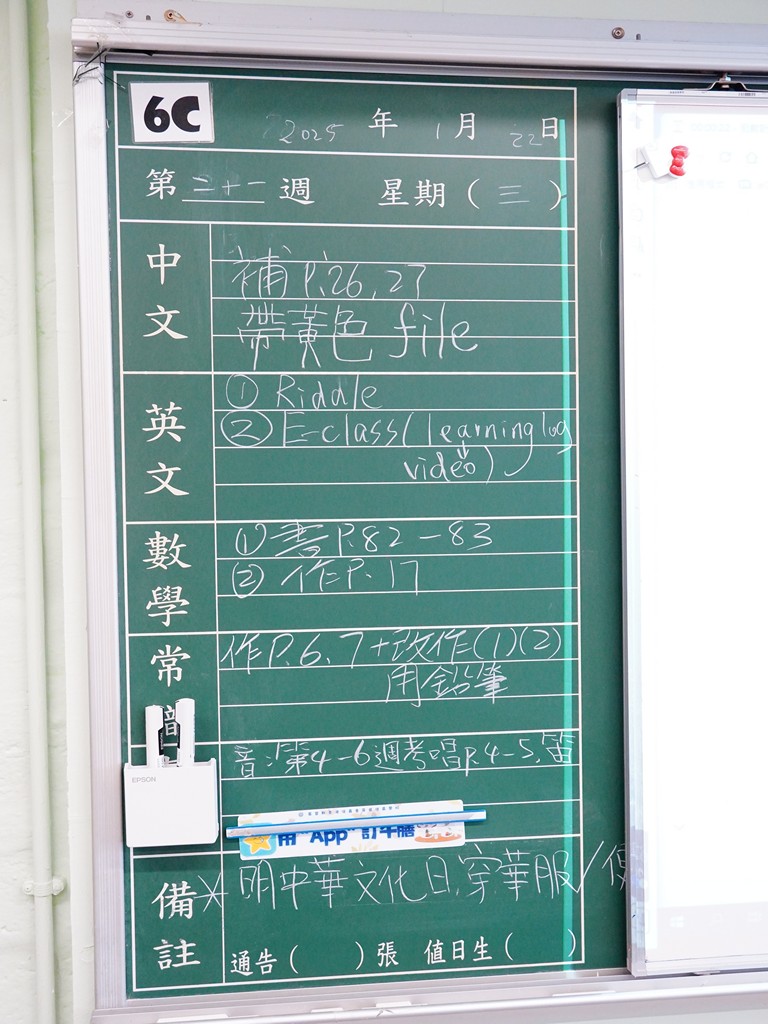 6C
2025 年 1 月 22 日
第 二十一 週 星期 ( 三 )
中文
補 P.26,27
帶黃色 file
英文
① Riddle
② E-class (learning log
video)
數學
① 書 P.82-83
② 作 P.17
常
作P.6,7+改作(1)(2)
用鉛筆
音:第4-6週考唱P.4-5,笛
EPSON
用"App"訂午膳
備註
* 明中華文化日,穿華服/便
通告 ( ) 張 值日生 ( )